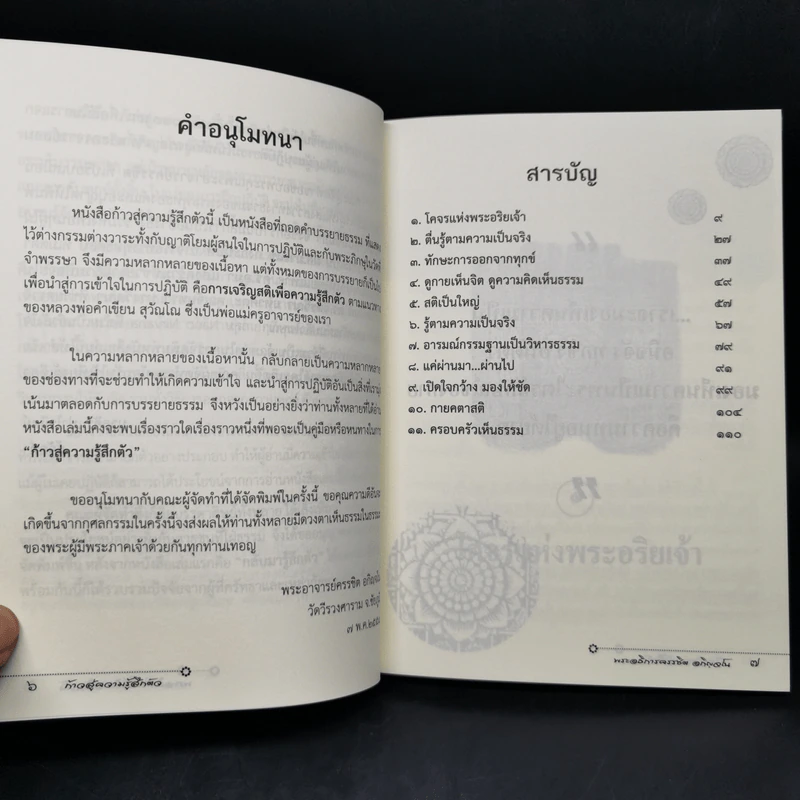 คำอนุโมทนา
หนังสือก้าวสู่ความรู้สึกตัวนี้ เป็นหนังสือที่ถอดคำบรรยายธรรม ที่แสดง
ไว้ต่างกรรมต่างวาระทั้งกับญาติโยมผู้สนใจในการปฏิบัติและกับพระภิกษุใน
จำพรรษา จึงมีความหลากหลายของเนื้อหา แต่ทั้งหมดของการบรรยายก็เป็นไป
เพื่อนำสู่การเข้าใจในการปฏิบัติ คือการเจริญสติเพื่อความรู้สึกตัว ตามแนวทาง
ของหลวงพ่อคำเขียน สุวัณโณ ซึ่งเป็นพ่อแม่ครูอาจารย์ของเรา
ในความหลากหลายของเนื้อหานั้น กลับกลายเป็นความหลากหลาย
ของช่องทางที่จะช่วยทำให้เกิดความเข้าใจ และนำสู่การปฏิบัติอันเป็นสิ่งที่เรา
เน้นมาตลอดกับการบรรยายธรรม จึงหวังเป็นอย่างยิ่งว่าท่านทั้งหลายที่ได้อ่าน
หนังสือเล่มนี้คงจะพบเรื่องราวใดเรื่องราวหนึ่งที่พอจะเป็นคู่มือหรือหนทางในการ
“ก้าวสู่ความรู้สึกตัว”
ขออนุโมทนากับคณะผู้จัดทำที่ได้จัดพิมพ์ในครั้งนี้ ขอคุณความดีอัน
เกิดขึ้นจากกุศลกรรมในครั้งนี้จงส่งผลให้ท่านทั้งหลายมีดวงตาเห็นธรรมในธรรม
ของพระผู้มีพระภาคเจ้าด้วยกันทุกท่านเทอญ
พระอาจารย์ครรชิต
วัดวีรวงศาราม จ.ชัยภูมิ
๗ พ.ค.
๖ ก้าวสู่ความรู้สึกตัว
สารบัญ
๑. โคจรแห่งพระอริยเจ้า ๙
๒. ตื่นรู้ตามความเป็นจริง ๒๗
๓. ทักษะการออกจากทุกข์ ๓๗
๔. ดูกายเห็นจิต ดูความคิดเห็นธรรม ๔๙
๕. สติเป็นใหญ่ ๕๗
๖. รู้ตามความเป็นจริง ๖๗
๗. อารมณ์กรรมฐานเป็นวิหารธรรม ๗๗
๘. แค่ผ่านมา...ผ่านไป ๙๑
๙. เปิดใจกว้าง มองให้ชัด ๙๙
๑๐. กายคตาสติ ๑๐๔
๑๑. ครอบครัวเห็นธรรม ๑๑๐
พระอธิการครรชิต อกิญจโน ๗